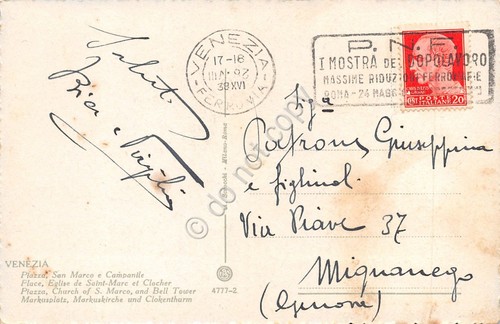 Saluti
Bice e Virgilio
VENEZIA
17-18
38 XVI
FERROVIA
P.N.F.
I MOSTRA DEL DOPOLAVORO
MASSIME RIDUZIONI FERROV
ROMA - 24 MAGG
POSTE ITALIANE
CENT. 20
Sig.ra
Patrone Giuseppina
e figlinol
Via Piave 37
Mignanego
(Genova)
VENEZIA
Piazza, San Marco e Campanile
Place, Eglise de Saint-Marc et Clocher
Piazza, Church of S. Marco, and Bell Tower
Markusplatz, Markuskirche und Clokenthurm
4777-2
Milano-Roma
do not copy